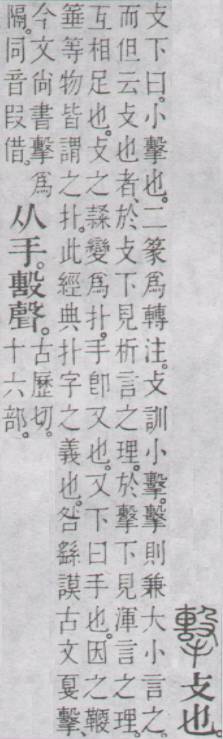 擊 攴也。
攴下曰。小擊也。二篆爲轉注。攴訓小擊。擊則兼大小言之。
而但云攴也者、於攴下見析言之理。於擊下見渾言之理。
互相足也。攴之隸變爲扑。手卽又也。又下曰手也。因之鞭
箠等物皆謂之扑。此經典扑字之義也。咎繇謨古文戛擊、
今文尙書擊爲
隔。同音叚借。
从手。毄聲。
古歷切。
十六部。